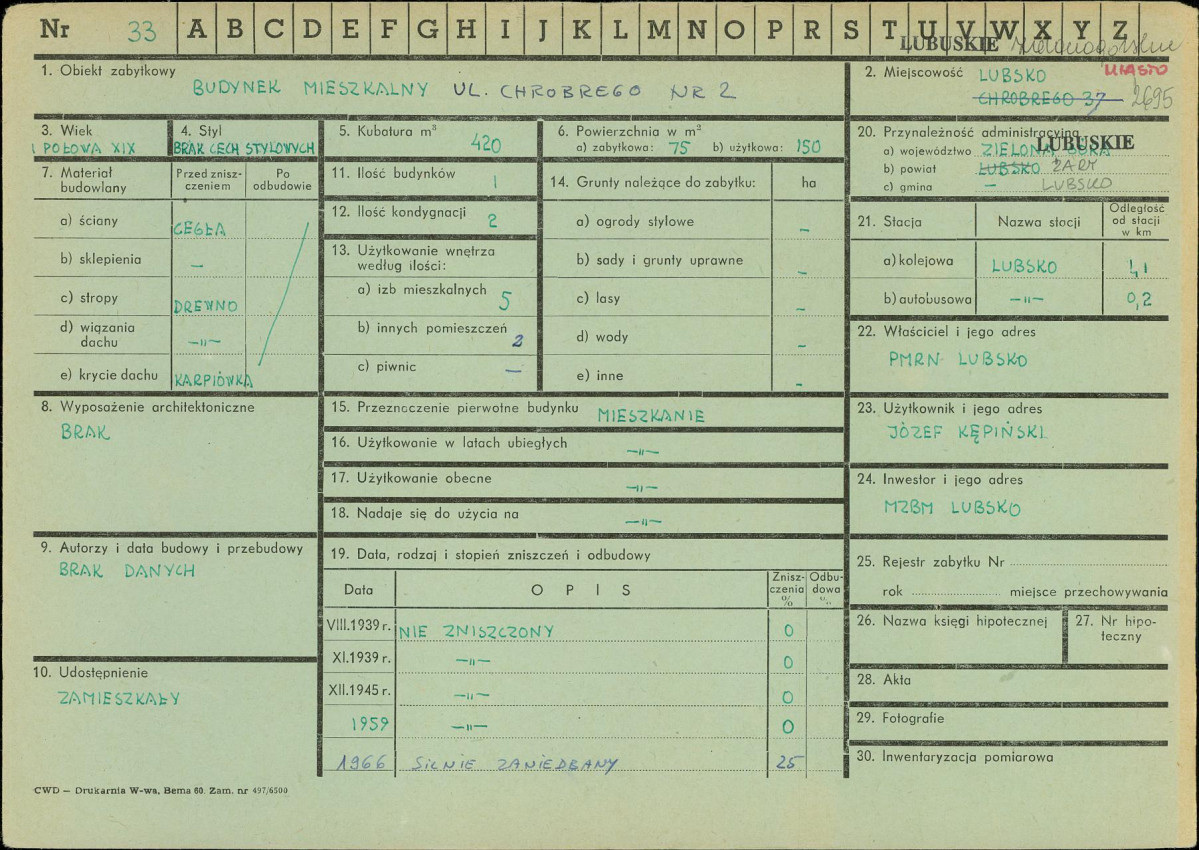 Nr 33 A B C D E F G H I J K L M N O P R S T U V W X Y Z
LUBUSKIE
1. Obiekt zabytkowy
BUDYNEK MIESZKALNY UL. CHROBREGO NR 2
2. Miejscowość LUBSKO MIASTO
CHROBREGO 37 2695
3. Wiek
I POŁOWA XIX
4. Styl
BRAK CECH STYLOWYCH
5. Kubatura m³
420
6. Powierzchnia w m²
a) zabytkowa: 75 b) użytkowa: 150
20. Przynależność administracyjna
LUBUSKIE
a) województwo ZIELONA GÓRA
b) powiat LUBSKO ŻARY
c) gmina — LUBSKO
7. Materiał budowlany
Przed zniszczeniem
Po odbudowie
a) ściany CEGŁA
b) sklepienia —
c) stropy DREWNO
d) wiązania dachu —„—
e) krycie dachu KARPIÓWKA
11. Ilość budynków 1
12. Ilość kondygnacji 2
13. Użytkowanie wnętrza
według ilości:
a) izb mieszkalnych 5
b) innych pomieszczeń 2
c) piwnic —
14. Grunty należące do zabytku: ha
a) ogrody stylowe —
b) sady i grunty uprawne —
c) lasy —
d) wody —
e) inne —
21. Stacja
Nazwa stacji
Odległość od stacji w km
a) kolejowa LUBSKO 1,1
b) autobusowa —„— 0,2
22. Właściciel i jego adres
PMRN LUBSKO
8. Wyposażenie architektoniczne
BRAK
15. Przeznaczenie pierwotne budynku MIESZKANIE
16. Użytkowanie w latach ubiegłych —„—
17. Użytkowanie obecne —„—
18. Nadaje się do użycia na —„—
23. Użytkownik i jego adres
JÓZEF KĘPIŃSKI
24. Inwestor i jego adres
MZBM LUBSKO
9. Autorzy i data budowy i przebudowy
BRAK DANYCH
19. Data, rodzaj i stopień zniszczeń i odbudowy
Data OPIS Zniszczenia % Odbudowa %
VIII.1939 r. NIE ZNISZCZONY 0
XI.1939 r. —„— 0
XII.1945 r. —„— 0
1959 —„— 0
1966 SILNIE ZANIEDBANY 25
10. Udostępnienie
ZAMIESZKAŁY
25. Rejestr zabytku Nr
rok miejsce przechowywania
26. Nazwa księgi hipotecznej
27. Nr hipoteczny
28. Akta
29. Fotografie
30. Inwentaryzacja pomiarowa
CWD — Drukarnia W-wa, Bema 60. Zam. nr 497/6500